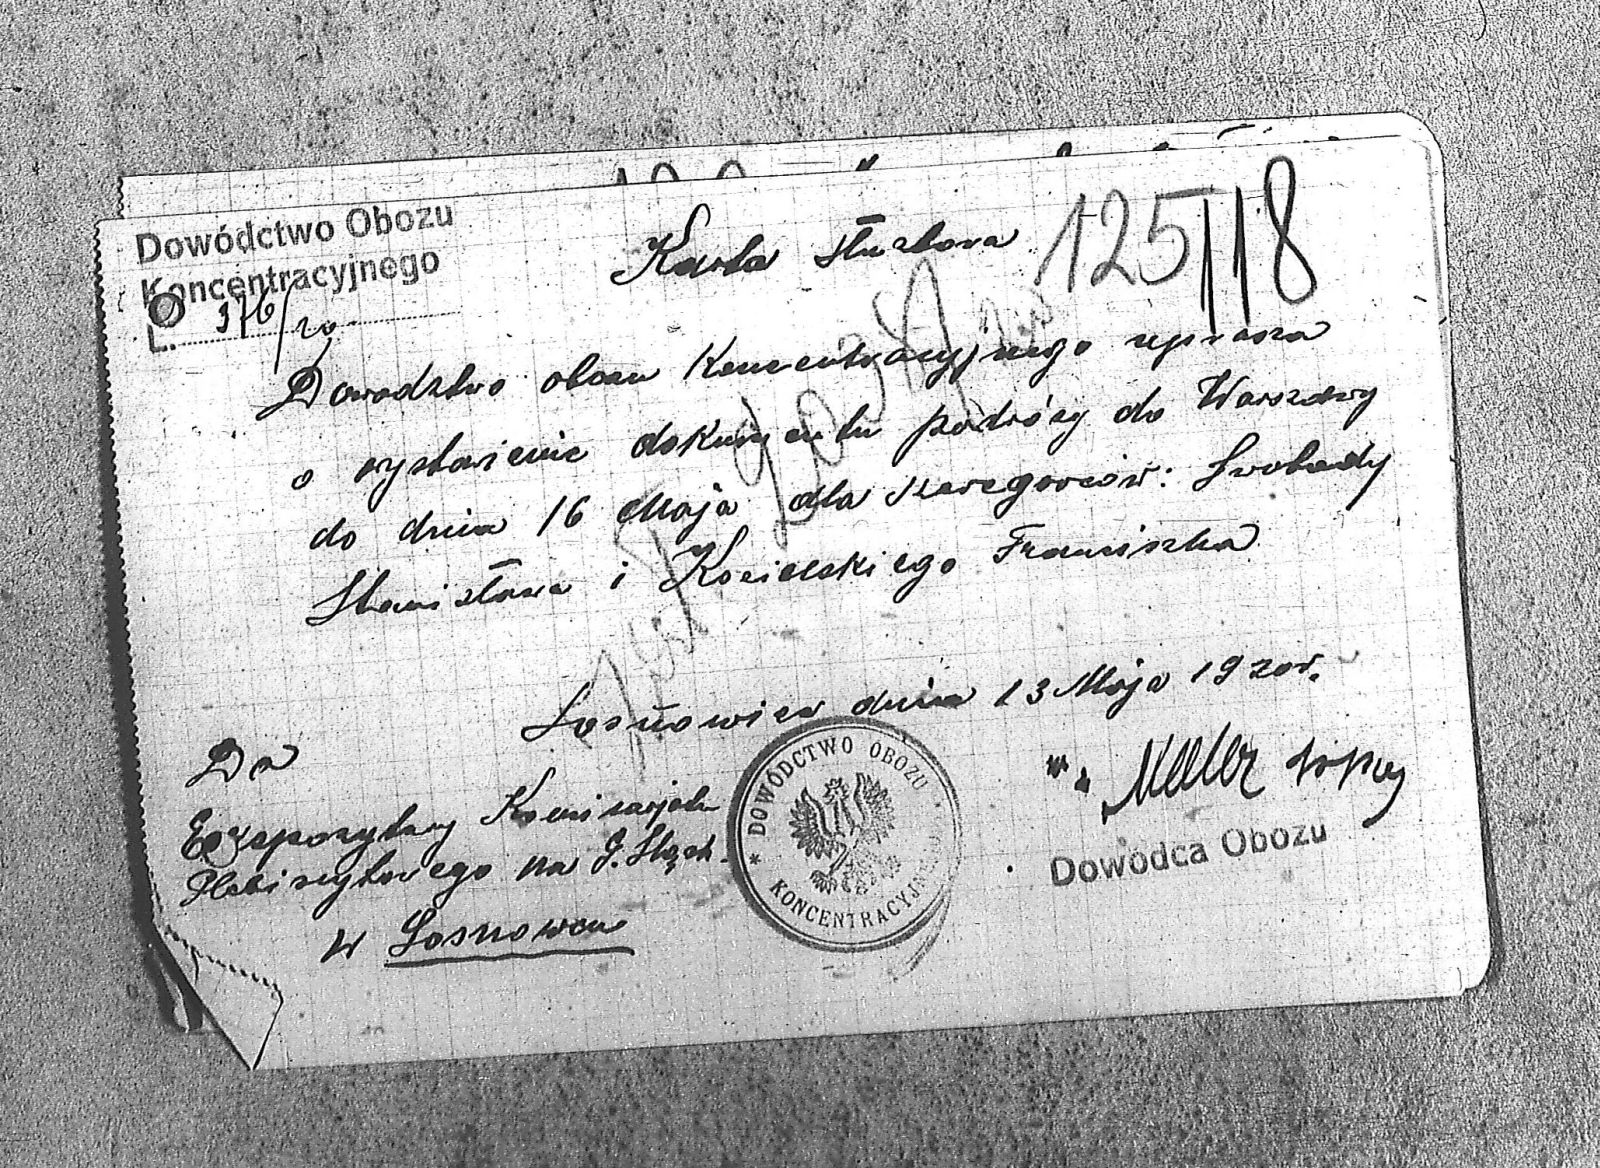 Dowództwo Obozu
Koncentracyjnego
L. 376/20
Karta służbowa
125/118
Dowodztwo obozu Koncentracyjnego uprasza
o wystawienie dokumentu podróży do Warszawy
do dnia 16 Maja dla szeregowców: Swobody
Stanisława i Kozielskiego Franciszka
Sosnowiec dnia 13 Maja 1920r.
Do
Ekspozytury Komisarjatu
Plebiscytowego na G. Śląsk.
w Sosnowcu
* DOWÓDCTWO OBOZU * KONCENTRACYJNEGO
Dowódca Obozu